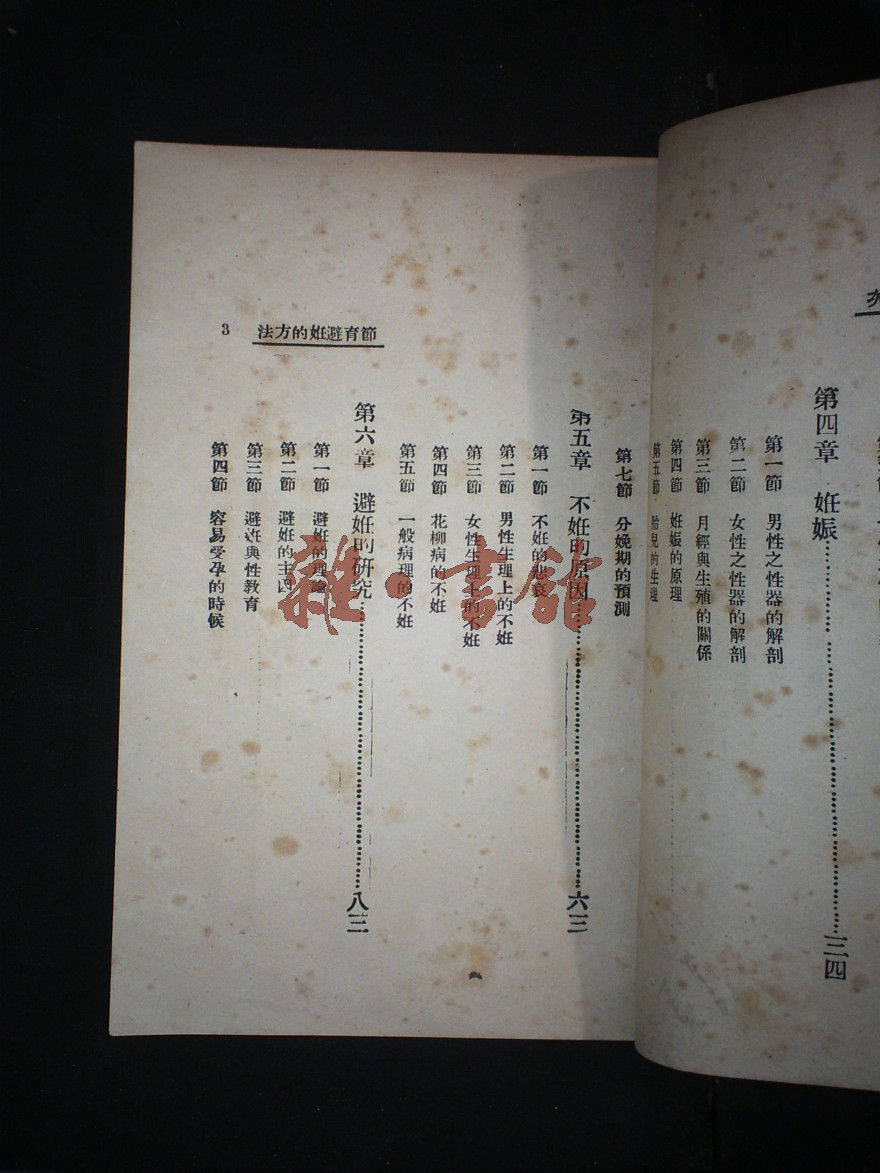 第四章 姙娠……三四
第一節 男性之性器的解剖
第二節 女性之性器的解剖
第三節 月經與生殖的關係
第四節 姙娠的原理
第五節 胎兒的生理
節育避姙的方法 3
第七節 分娩期的預測
第五章 不姙的原因……六三
第一節 不姙的悲哀
第二節 男性生理上的不姙
第三節 女性生理上的不姙
第四節 花柳病的不姙
第五節 一般病理的不姙
第六章 避姙的研究……八三
第一節 避姙的理論
第二節 避姙的主
第三節 避姙與性教育
第四節 容易受孕的時候
雜·書館